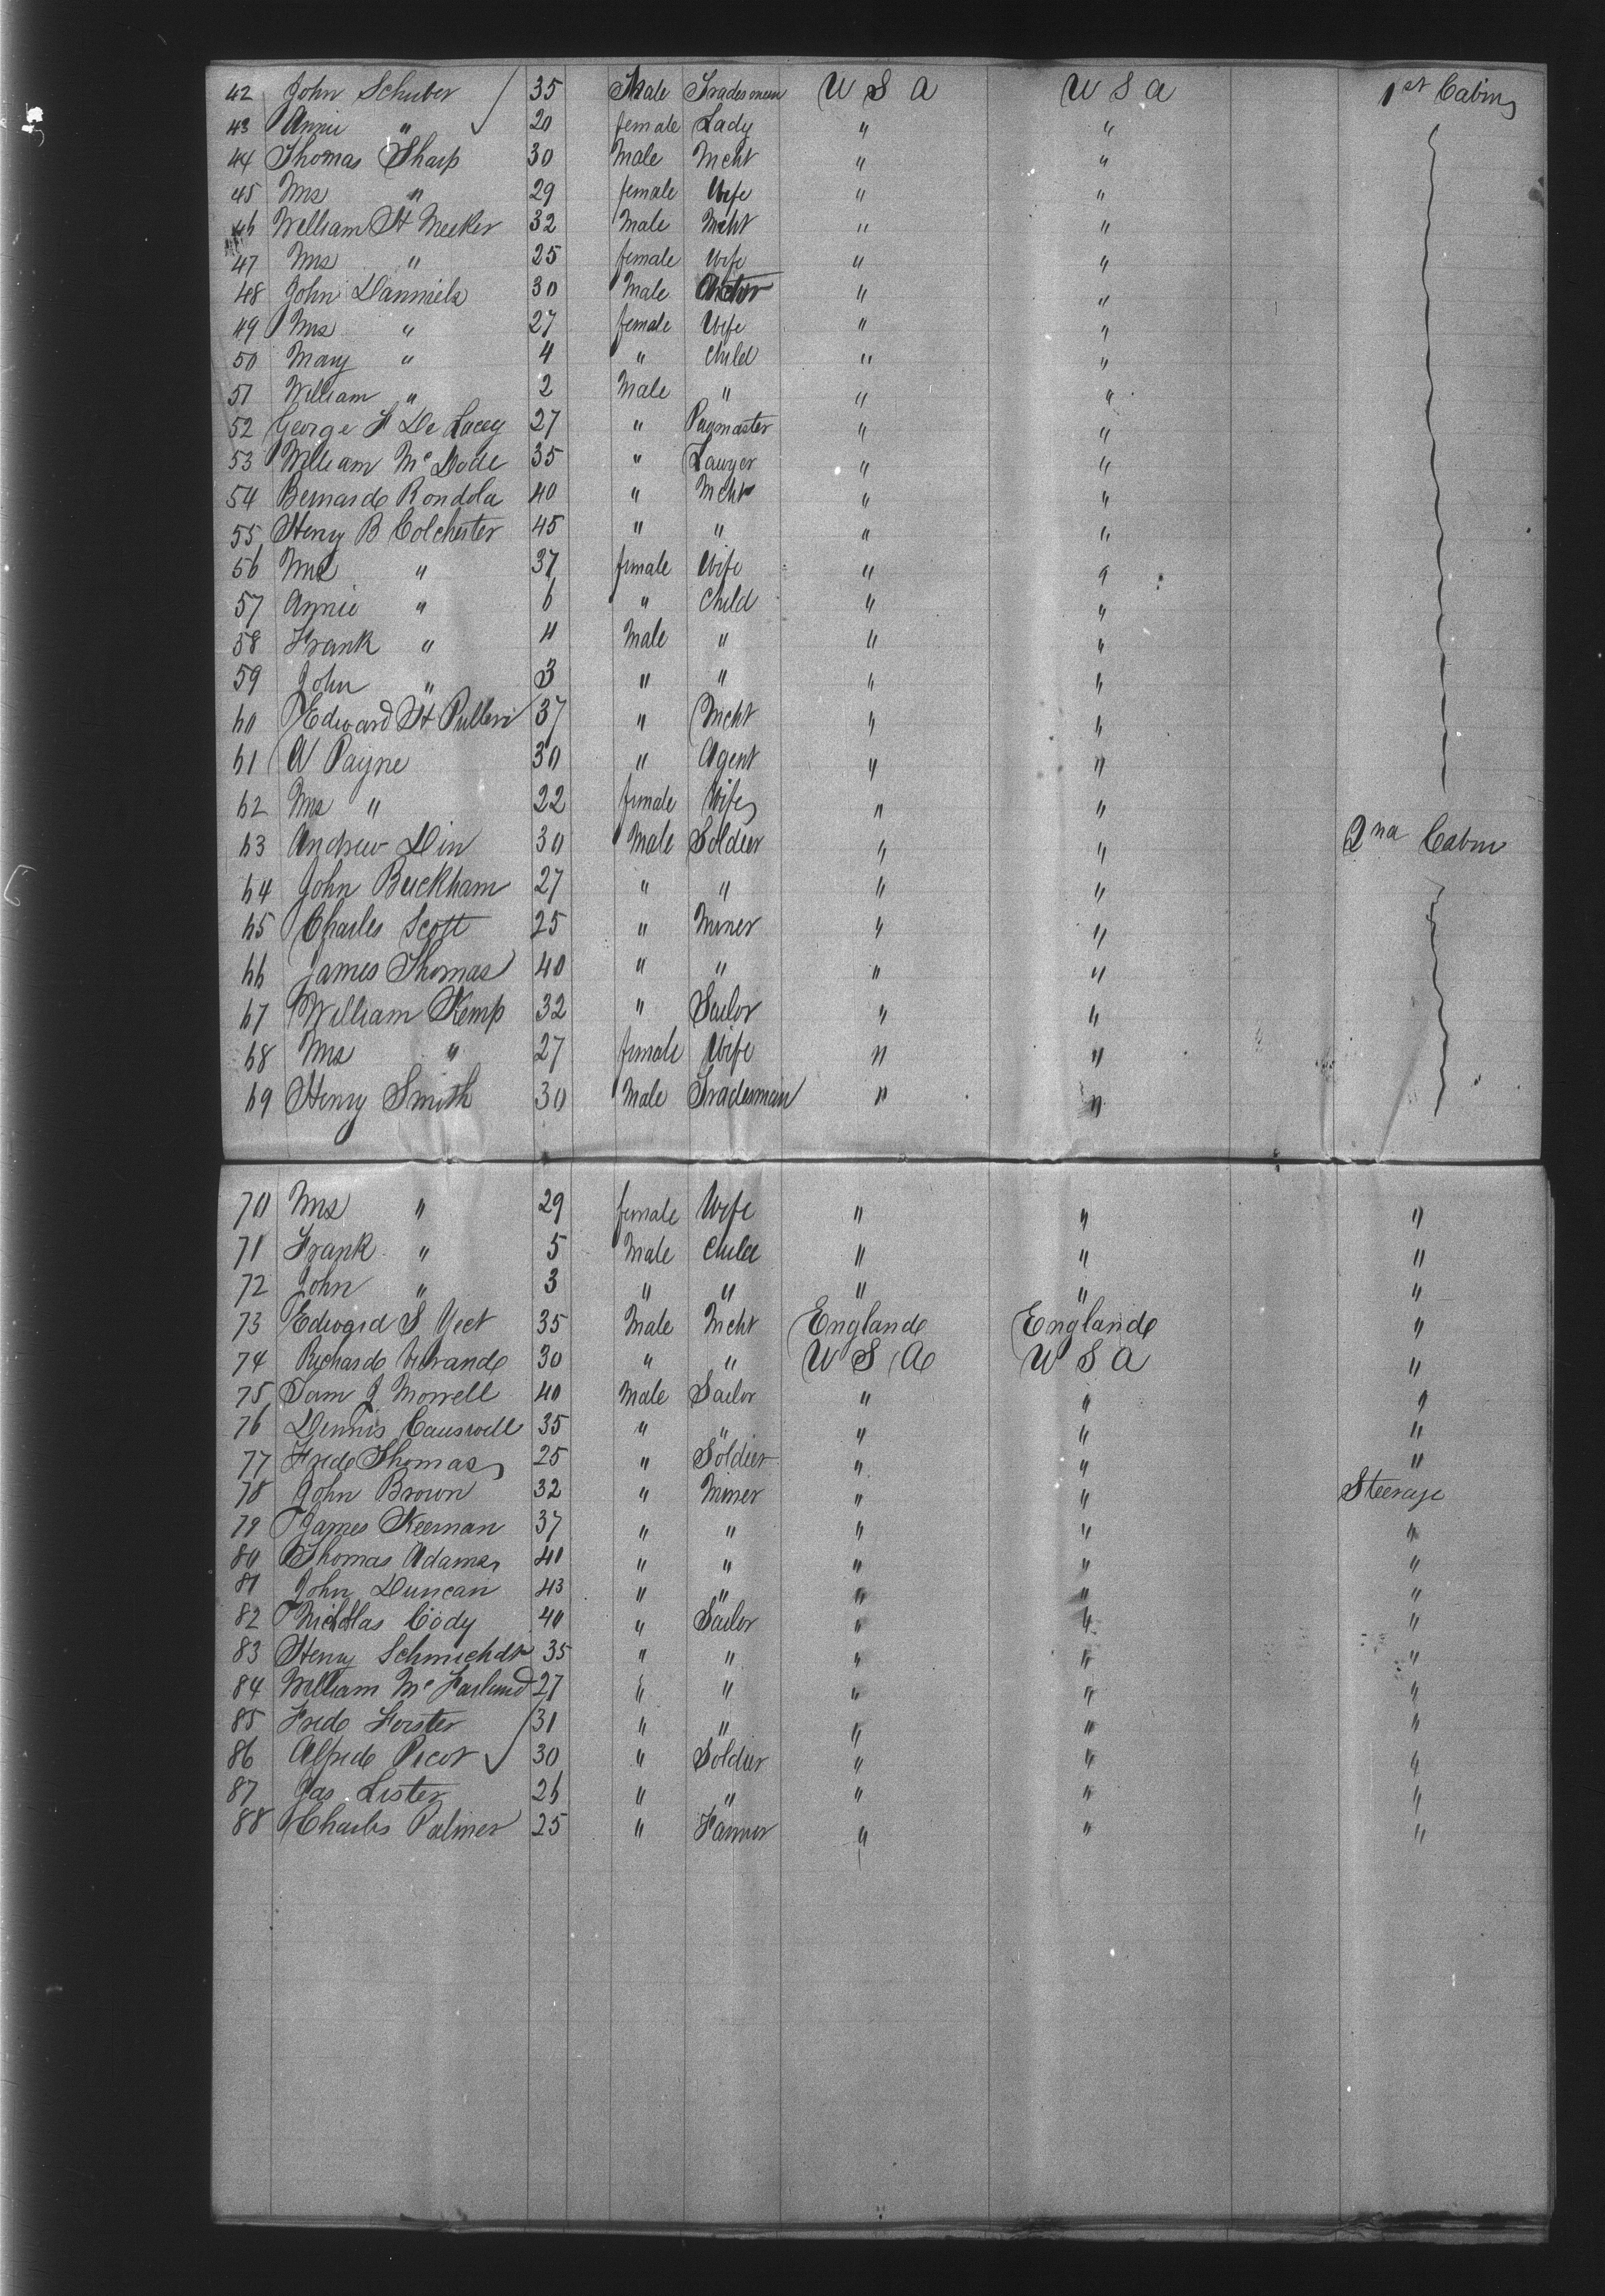 42 John Schuber 35 Male Tradesman U S A U S A 1st Cabin
43 Annie " 20 female Lady " "
44 Thomas Sharp 30 Male Mcht " "
45 Mrs " 29 female Wife " "
46 William H Meeker 32 Male Mcht " "
47 Mrs " 25 female Wife " "
48 John Danniels 30 Male " "
49 Mrs " 27 female Wife " "
50 Mary " 4 " Child " "
51 William " 2 Male " " "
52 George F De Lacey 27 " Paymaster " "
53 William Mc Dode 35 " Lawyer " "
54 Bernardo Rondola 40 " Mcht " "
55 Henry B Colchester 45 " " " "
56 Mrs " 37 female Wife " "
57 Annie " 6 " Child " "
58 Frank " 4 Male " " "
59 John " 3 " " " "
60 Edward H Pullen 37 " Mcht " "
61 W Payne 30 " Agent " "
62 Mrs " 22 female Wife " "
63 Andrew Din 30 Male Soldier " " 2nd Cabin
64 John Buckham 27 " " " "
65 Charles Scott 25 " Miner " "
66 James Thomas 40 " " " "
67 William Kemp 32 " Sailor " "
68 Mrs " 27 female Wife " "
69 Henry Smith 30 Male Tradesman " "
70 Mrs " 29 female Wife " " "
71 Frank " 5 Male Child " " "
72 John " 3 " " " " "
73 Edward S 35 Male Mcht England England "
74 Richard 30 " " U S A U S A "
75 Sam J Morrell 40 Male Sailor " " "
76 Dennis Causwell 35 " " " " "
77 Fred Thomas 25 " Soldier " " "
78 John Brown 32 " Miner " " Steerage
79 James Keernan 37 " " " " "
80 Thomas Adams 40 " " " " "
81 John Duncan 43 " " " " "
82 Nicholas Cody 40 " Sailor " " "
83 Henry Schmichdt 35 " " " " "
84 William Mc Farland 27 " " " " "
85 Fred Forster 31 " " " " "
86 Alfred Picot 30 " Soldier " " "
87 Jas Lister 26 " " " " "
88 Charles Palmer 25 " Farmer " " "